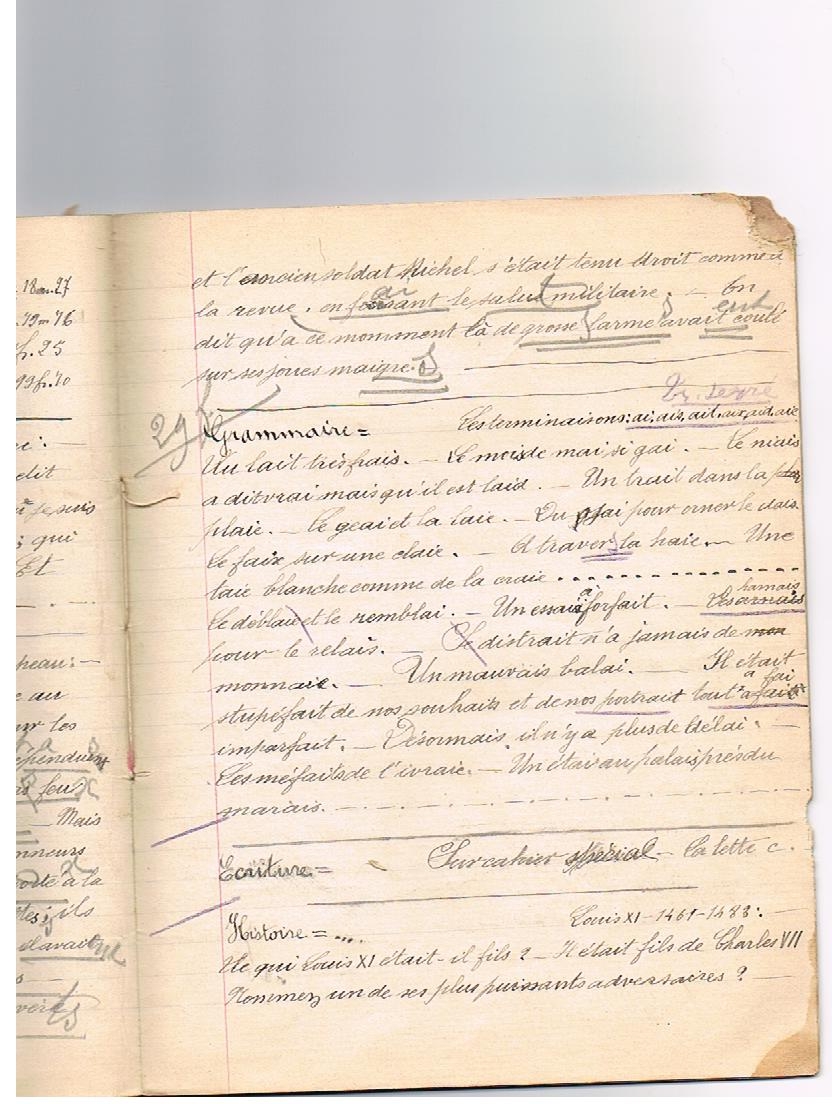 18 m. 27
79 m 76
fr. 25
99 fr. 70
dit
je suis
; qui
Et
heau : —
au
ur les
ependant
feu
— Mais
nneurs
à la
; ils
avait
et l'ancien soldat Michel s'était tenu droit comme à
la revue, en fesant le salut militaire. — On
ai
dit qu'à ce momment là de grosse larme avait coulé
s s eut
sur ses joues maigre. s
29 f
Tr. serré
Grammaire = Les terminaisons : ai, ais, ait, aix, aid, aie
Un lait très frais. — Le mois de mai si gai. — Le niais
a dit vrai mais qu'il est laid. — Un trait dans la
plaie. — Le geai et la laie. — Du jai pour orner le dais.
Le faix sur une claie. — A travers la haie. — Une
taie blanche comme de la craie
Le déblaie et le remblai. — Un essai à forfait. — Les harnais
pour le relais. — Le distrait n'a jamais de mon
monnaie. — Un mauvais balai. — Il était
stupéfait de nos souhaits et de nos portrait tout à fait
à fai
imparfait. — Désormais il n'y a plus de délai. —
Les méfaits de l'ivraie. — Un étai au palais près du
marais.
Ecriture = Sur cahier spécial — La lette c. —
Histoire = .... Louis XI — 1461 - 1483 : —
De qui Louis XI était-il fils ? — Il était fils de Charles VII
Nommez un de ses plus puissants adversaires ? —